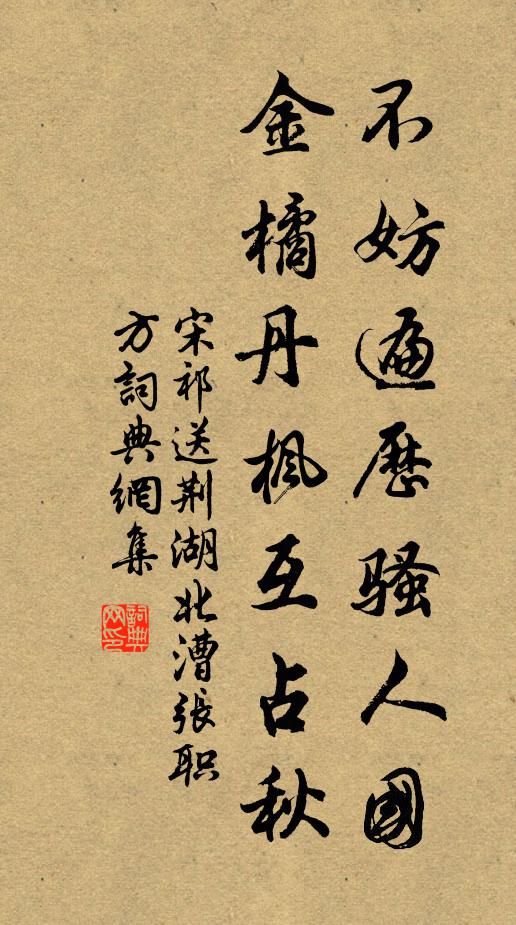 不妨遍歷騷人國
金橘丹楓互占秋
宋祁送荆湖北漕張职
方詞典網集
詞典
网印